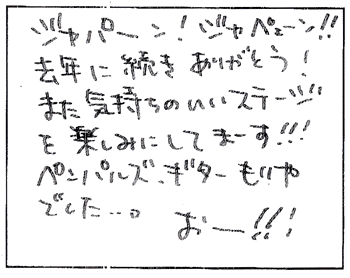 ジャパーン！ジャペェーン!!
去年に続きありがとう！
また気持ちのいいステージ
を楽しみにしてまーす!!!
ペンパルズ、ギターもりや
でした…。 おー!!!